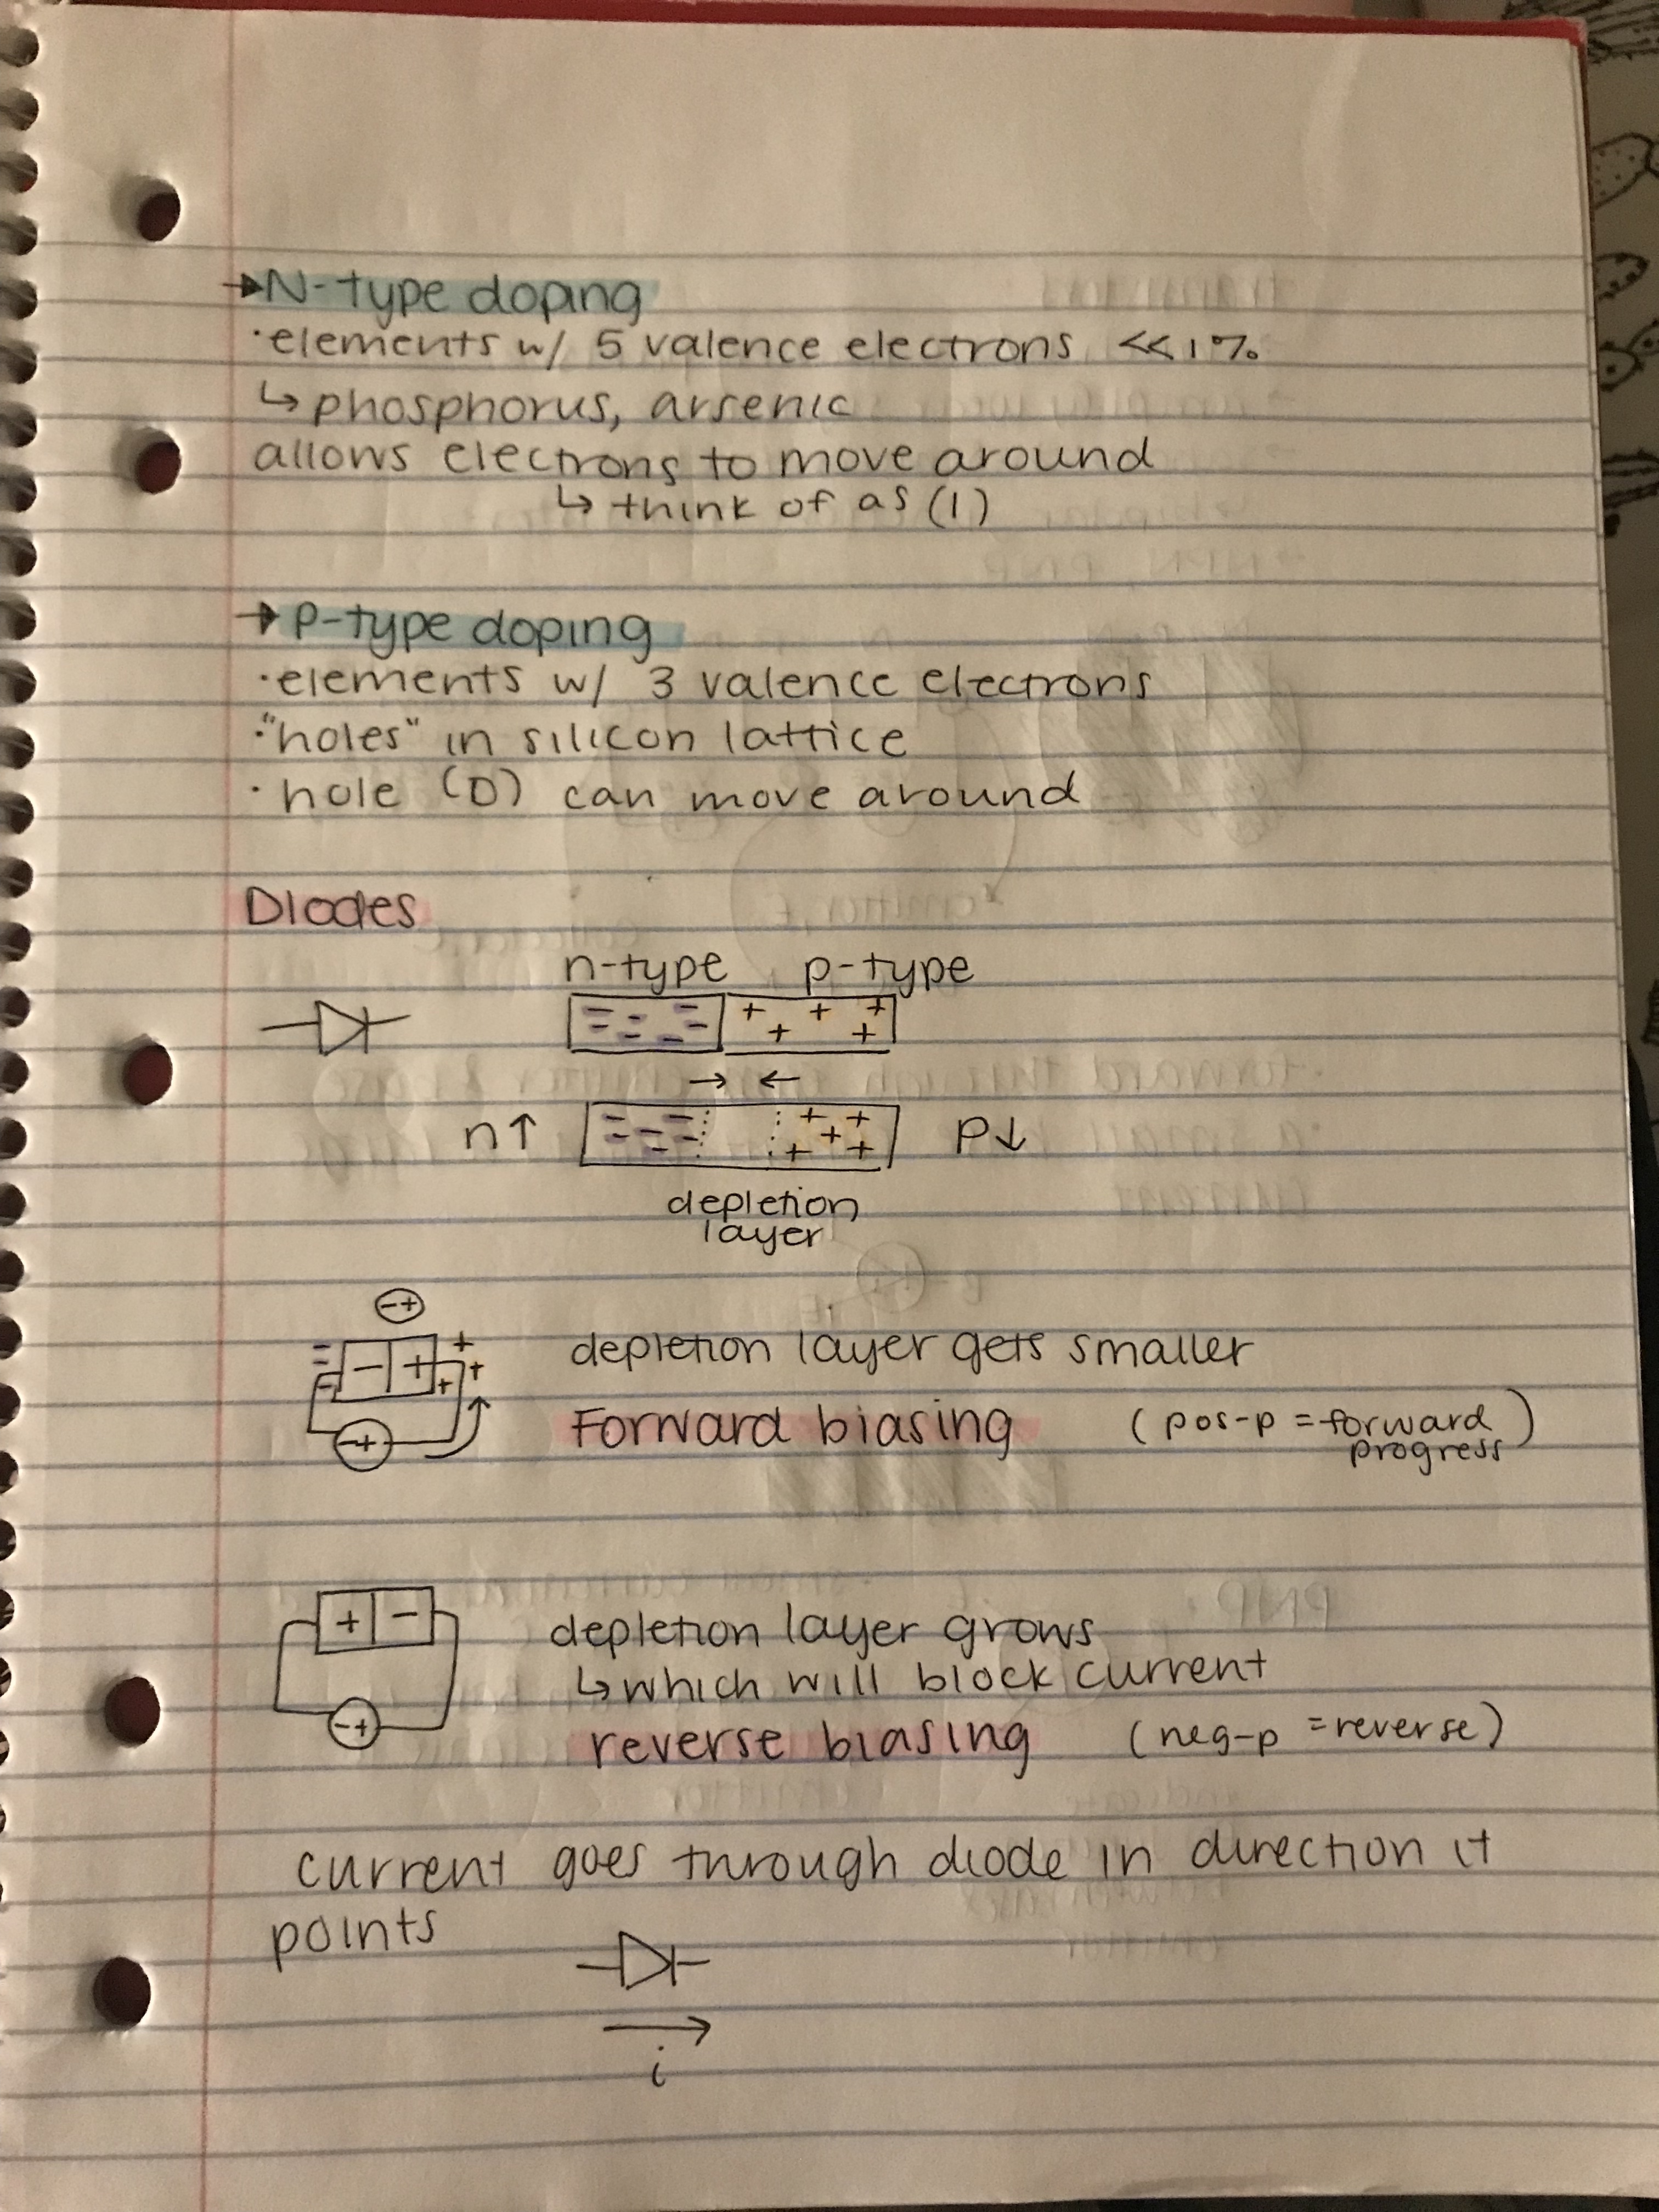 →N-type doping
·elements w/ 5 valence electrons <<1%
↳ phosphorus, arsenic
allows electrons to move around
↳ think of as (1)
→ P-type doping
·elements w/ 3 valence electrons
·"holes" in silicon lattice
·hole (0) can move around
Diodes
n-type p-type
→ ←
n↑ p↓
depletion
layer
depletion layer gets smaller
Forward biasing (pos-p = forward
progress)
depletion layer grows
↳which will block current
reverse biasing (neg-p = reverse)
current goes through diode in direction it
points
i